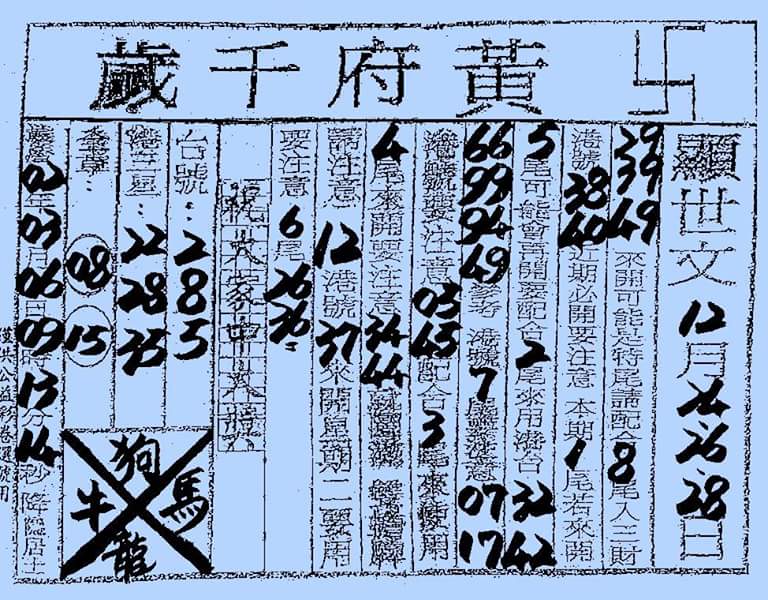 卐 黃府千歲
顯世文 12月24.26.28日
29 39 49 來開可能是特尾請配合8尾入三財
港號 38 40 近期必開要注意 本期1尾若來開
5尾可能會再開要配合2尾來用港台 32 42
66 99 94 49 參考 港號7尾 注意 07 17
港號要注意 03 45 配合3尾來 用
4尾來開要注意 34 44
請注意 12 港號 37 來開星期二要用
要注意 6尾 26 36
祝大家中大獎
台號: 2 8 5
港三星: 22 28 35
08 15
狗 馬 牛 龍
02年 03月 06日 09時 13分 14秒 降臨居士
僅供公益彩卷選號用